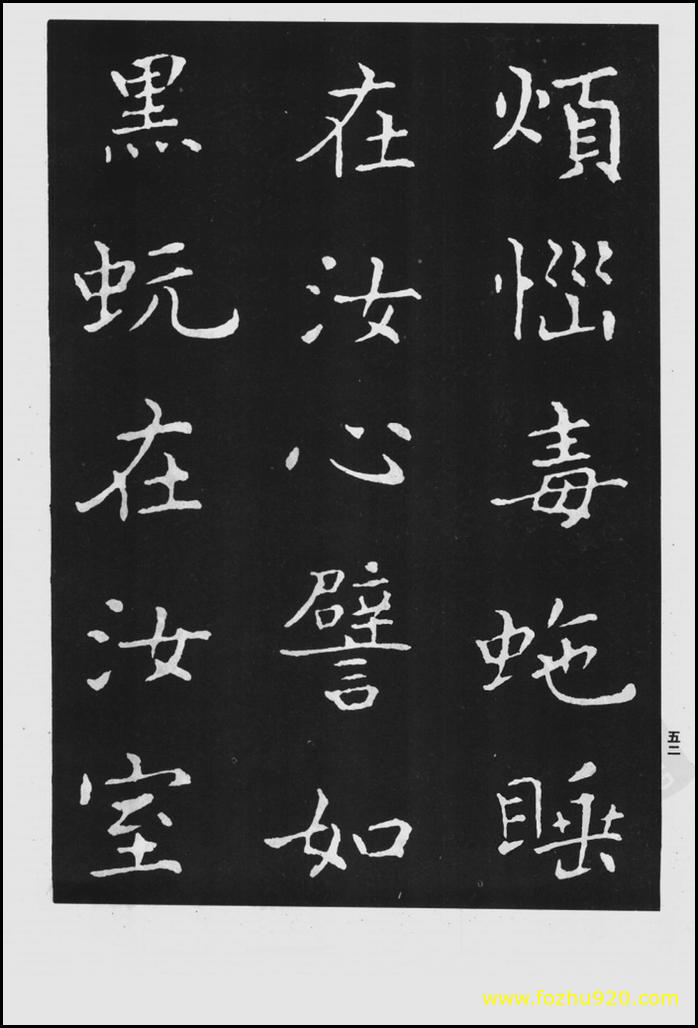 煩惱毒虵睡
在汝心譬如
黑蚖在汝室
五二
www.fozhu920.com